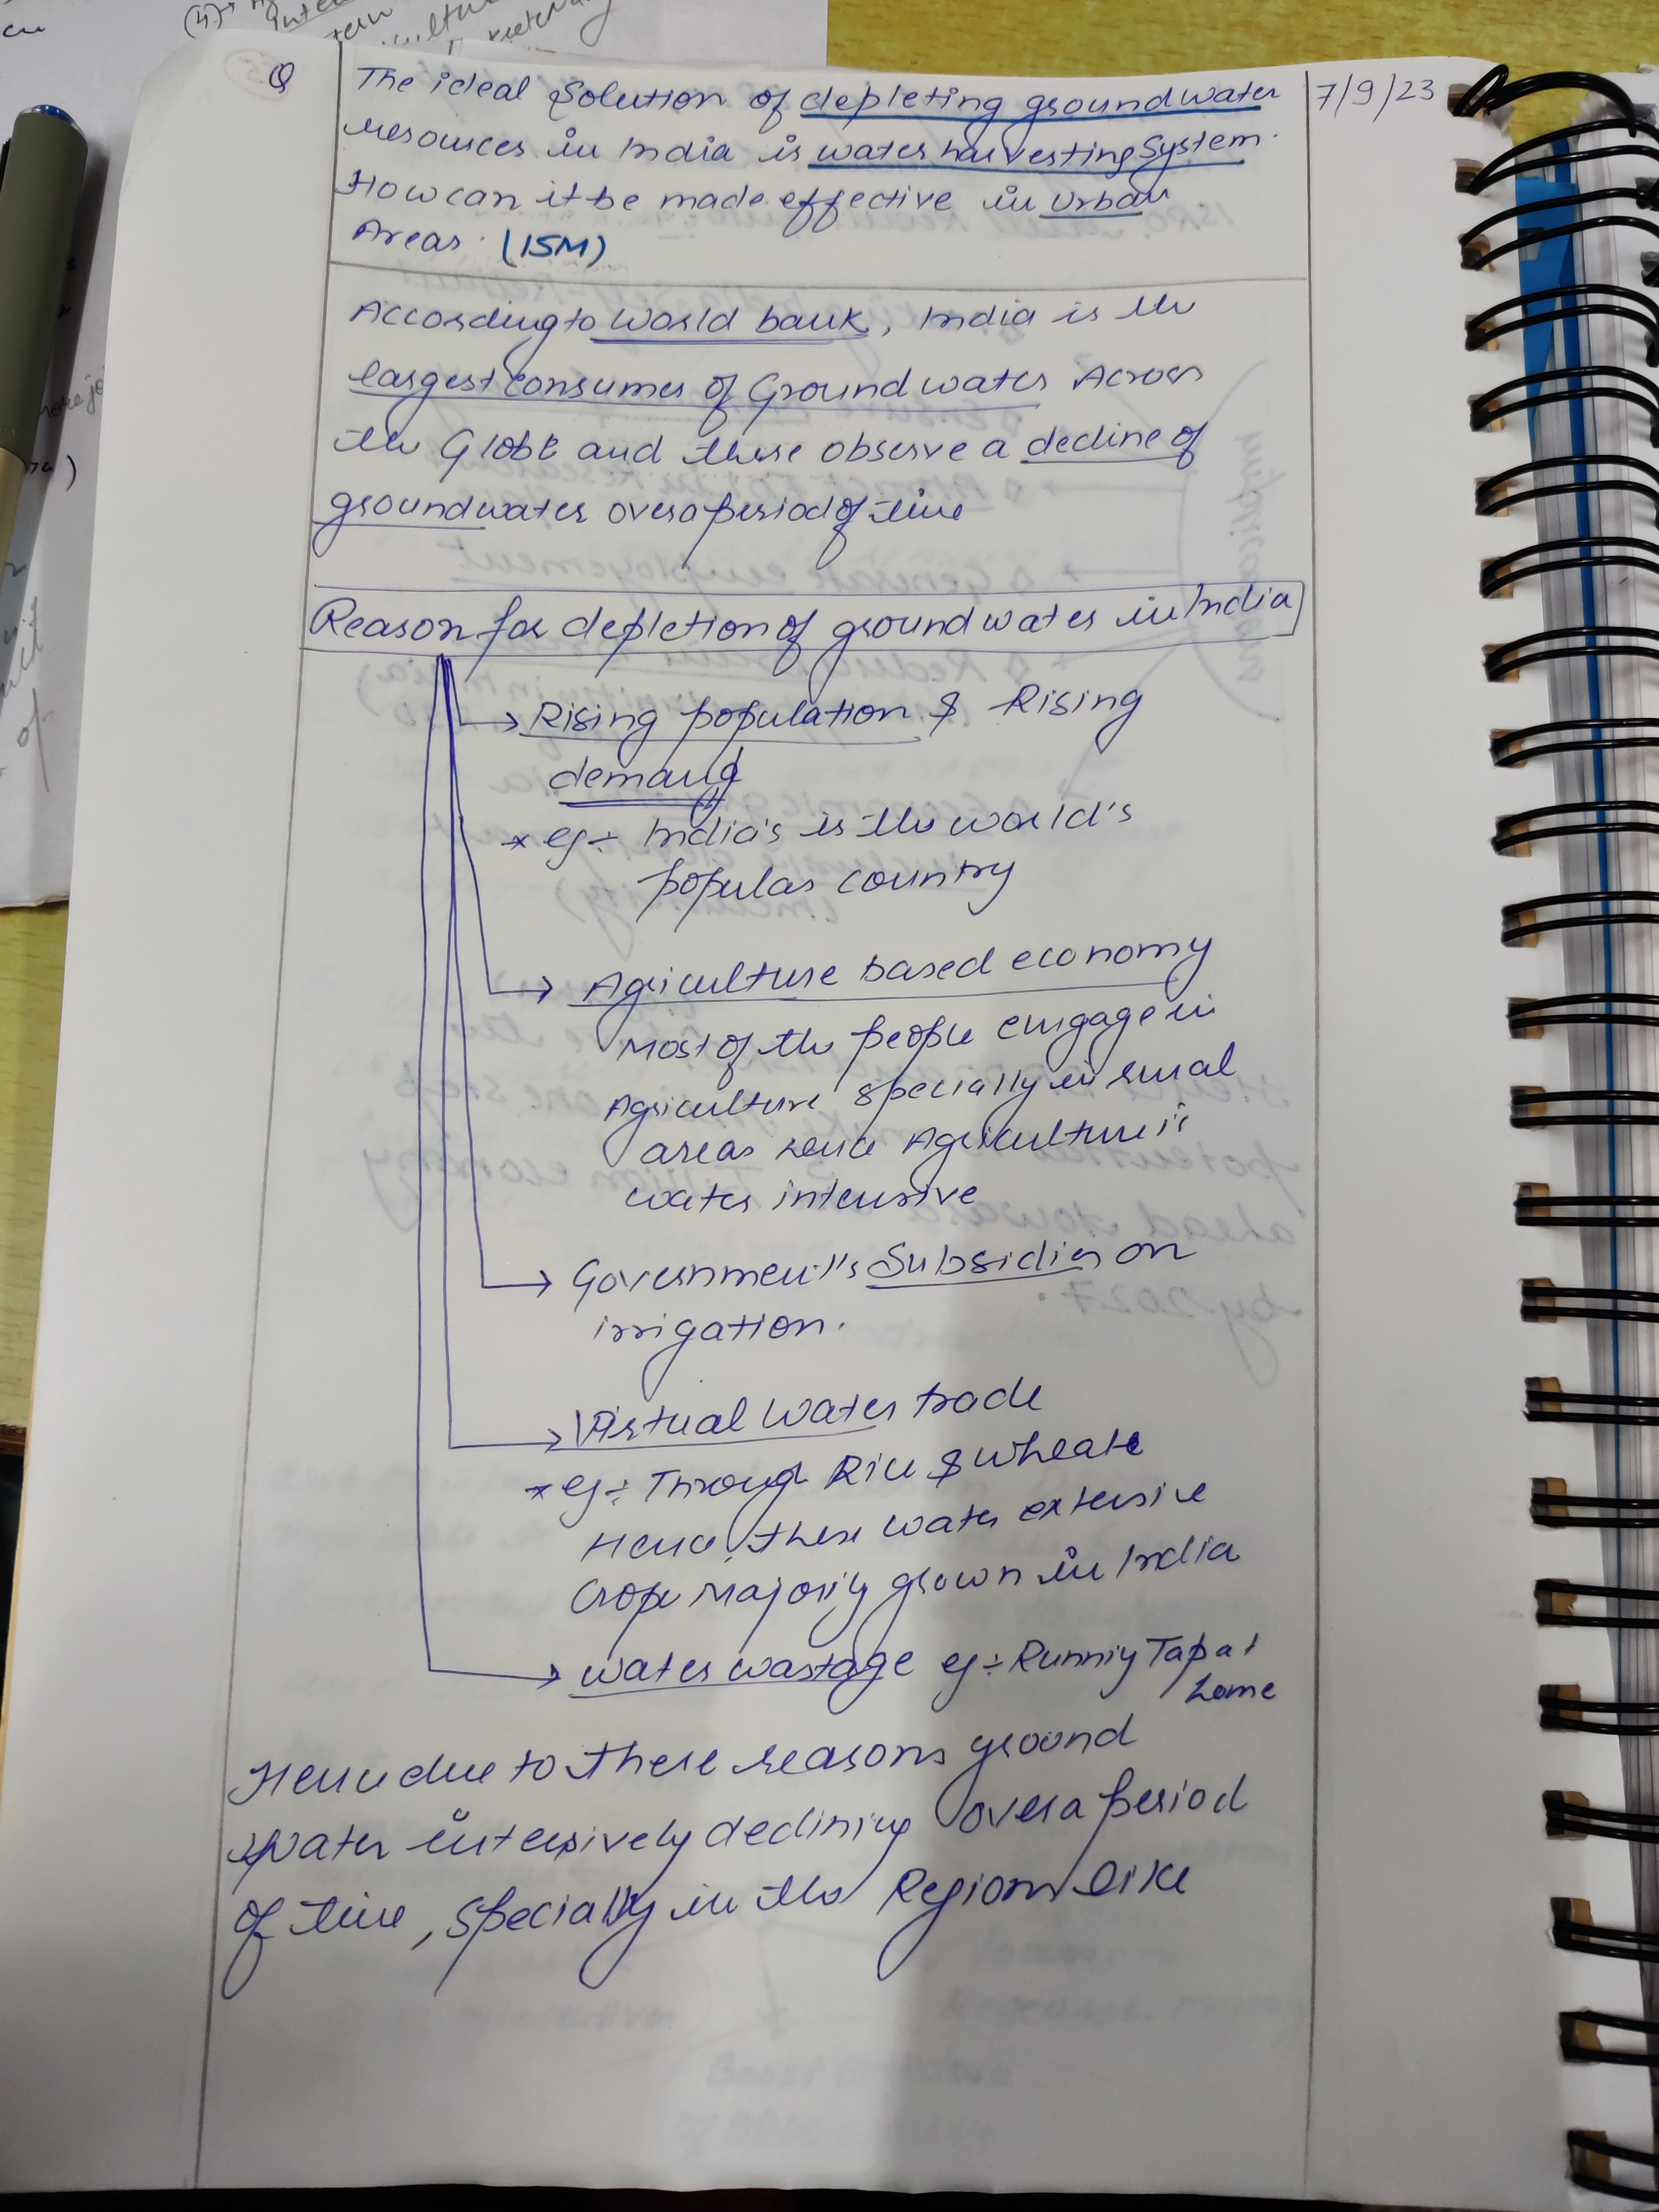 Q
The ideal Solution of depleting ground water
resources in India is water harvesting System.
How can it be made effective in urban
Areas. (15M)
7/9/23
According to World bank, India is the
largest consumer of Ground water Across
the Globe and there observe a decline of
groundwater over a period of time
Reason for depletion of ground water in India
→ Rising population & Rising
demand
* eg ÷ India's is the world's
popular country
→ Agriculture based economy
Most of the people engage in
Agriculture specially in rural
areas hence Agriculture is
water intensive
→ Government's Subsidies on
irrigation.
→ Virtual Water trade
* eg ÷ Through Rice & wheate
Hence, these water extensive
Crops Majorly grown in India
→ water wastage eg ÷ Runniy Tap at
home
Hence due to these reasons ground
water intensively declining over a period
of time, specially in the Regions like